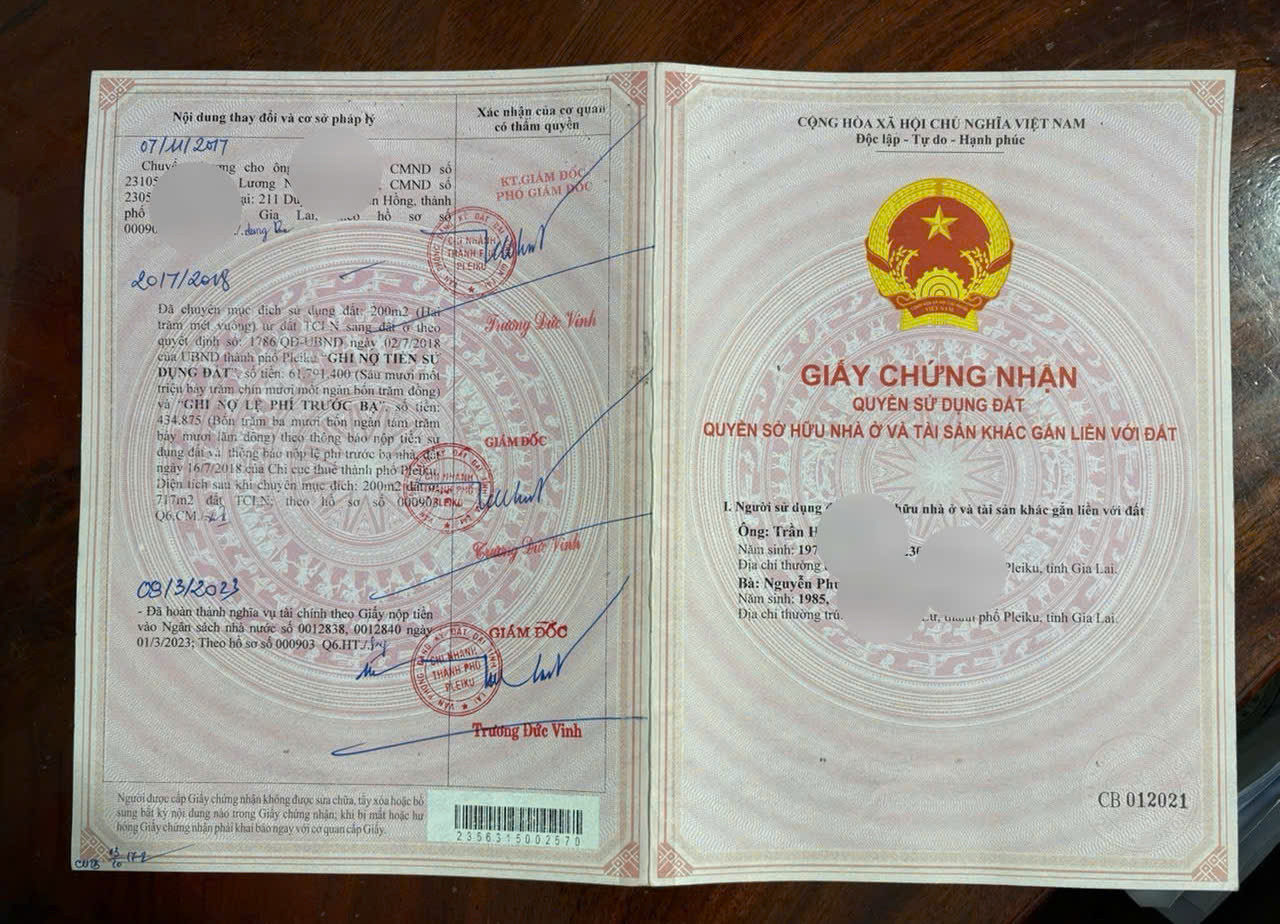 Nội dung thay đổi và cơ sở pháp lý
Xác nhận của cơ quan
có thẩm quyền
07/11/2017
cho ông CMND số
23105 Lương CMND số
2305 211 Hồng, thành
phố Gia Lai, theo hồ sơ số
KT.GIÁM ĐỐC
PHÓ GIÁM ĐỐC
CHI NHÁNH
THÀNH PHỐ
PLEIKU
Trương Đức Vinh
20/7/2018
Đã chuyển mục đích sử dụng đất: 200m2 (Hai
trăm mét vuông) từ đất TCLN sang đất ở theo
quyết định số: 1786/QĐ-UBND ngày 02/7/2018
của UBND thành phố Pleiku "GHI NỢ TIỀN SỬ
DỤNG ĐẤT", số tiền: 61.791.400 (Sáu mươi mốt
triệu bảy trăm chín mươi mốt ngàn bốn trăm đồng)
và "GHI NỢ LỆ PHÍ TRƯỚC BẠ", số tiền:
434.875 (Bốn trăm ba mươi bốn ngàn tám trăm
bảy mươi lăm đồng) theo thông báo nộp tiền sử
dụng đất và thông báo nộp lệ phí trước bạ nhà, đất
ngày 16/7/2018 của Chi cục thuế thành phố Pleiku.
Diện tích sau khi chuyển mục đích: 200m2 đất ở,
717m2 đất TCLN; theo hồ sơ số 000903
Q6.CM./.
GIÁM ĐỐC
CHI NHÁNH
THÀNH PHỐ
PLEIKU
Trương Đức Vinh
09/3/2023
- Đã hoàn thành nghĩa vụ tài chính theo Giấy nộp tiền
vào Ngân sách nhà nước số 0012838, 0012840 ngày
01/3/2023; Theo hồ sơ số 000903 Q6.HT./.
GIÁM ĐỐC
CHI NHÁNH
THÀNH PHỐ
PLEIKU
Trương Đức Vinh
Người được cấp Giấy chứng nhận không được sửa chữa, tẩy xóa hoặc bổ
sung bất kỳ nội dung nào trong Giấy chứng nhận; khi bị mất hoặc hư
hỏng Giấy chứng nhận phải khai báo ngay với cơ quan cấp Giấy.
2356315002570
CỘNG HÒA XÃ HỘI CHỦ NGHĨA VIỆT NAM
Độc lập - Tự do - Hạnh phúc
GIẤY CHỨNG NHẬN
QUYỀN SỬ DỤNG ĐẤT
QUYỀN SỞ HỮU NHÀ Ở VÀ TÀI SẢN KHÁC GẮN LIỀN VỚI ĐẤT
I. Người sử dụng hữu nhà ở và tài sản khác gắn liền với đất
Ông: Trần
Năm sinh: 197
Địa chỉ thường Pleiku, tỉnh Gia Lai.
Bà: Nguyễn
Năm sinh: 1985,
Địa chỉ thường thành phố Pleiku, tỉnh Gia Lai.
CB 012021